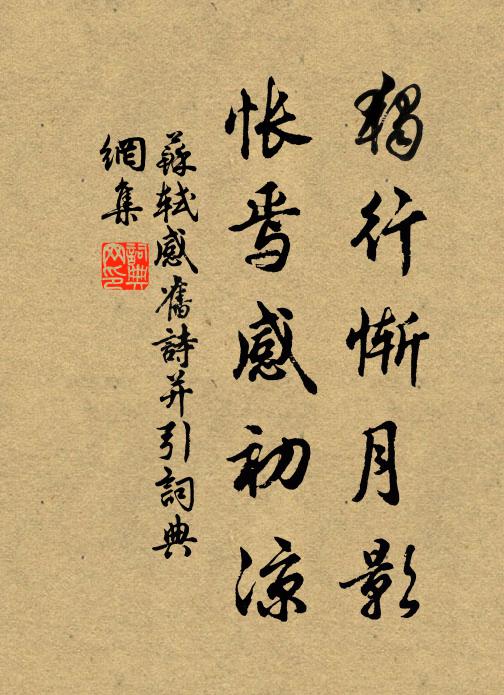 獨行慚月影
悵焉感初涼
蘇軾感舊詩并引詞典
網集
詞典
网印